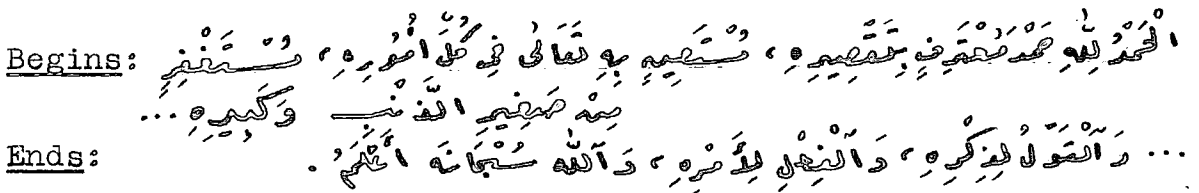 Begins: الْحَمْدُ لِلَّهِ حَمْدَ مُعْتَرِفٍ بِتَقْصِيرِهِ، مُسْتَعِينٍ بِهِ تَعَالَى فِي كُلِّ أُمُورِهِ، مُسْتَغْفِرٍ
مِنْ صَغِيرِ الذَّنْبِ وَكَبِيرِهِ...
Ends: ... وَالْقَوْلُ لِذِكْرِهِ، وَالْفِعْلِ لِأَمْرِهِ، وَاللّٰه سُبْحَانَه أَعْلَمُ.